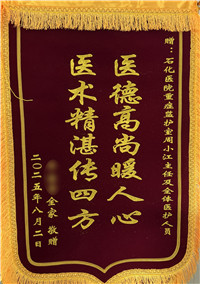 赠：石化医院重症监护室周小江主任及全体医护人员
医德高尚暖人心
医术精湛传四方
全家 敬赠
二〇二五年八月二日